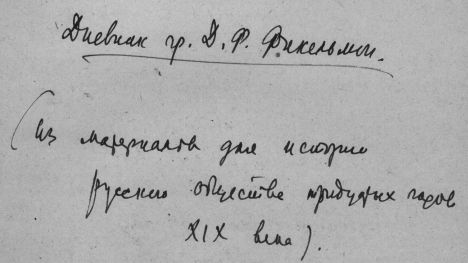 Дневник гр. Д. Ф. Фикельмон.
(Из материалов для истории
русского общества тридцатых годов
XIX века).